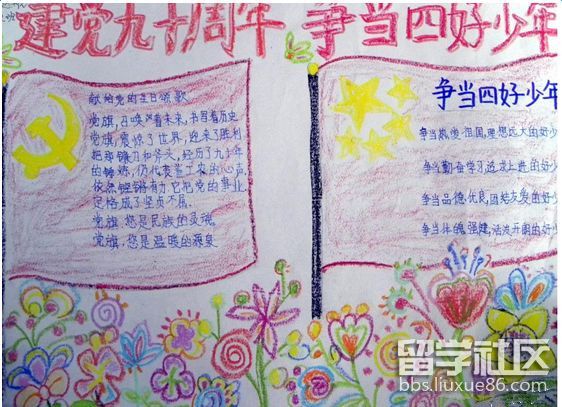 建党九十周年
争当四好少年
献给党的生日颂歌
党旗,召唤着未来,书写着历史
党旗,震惊了世界,迎来了胜利
把那镰刀和斧头,经历了九十年
的锤炼,仍代表着工农的心声,
依然铿锵有力,它把党的事业
定格成了坚贞不屈。
党旗,您是民族的灵魂
党旗,您是温暖的源泉
争当四好少年
争当热爱祖国,理想远大的好少
争当勤奋学习,追求上进的好少
争当品德优良,团结友爱的好少
争当体魄强健,活泼开朗的好少
留学社区
bbs.liuxue86.com